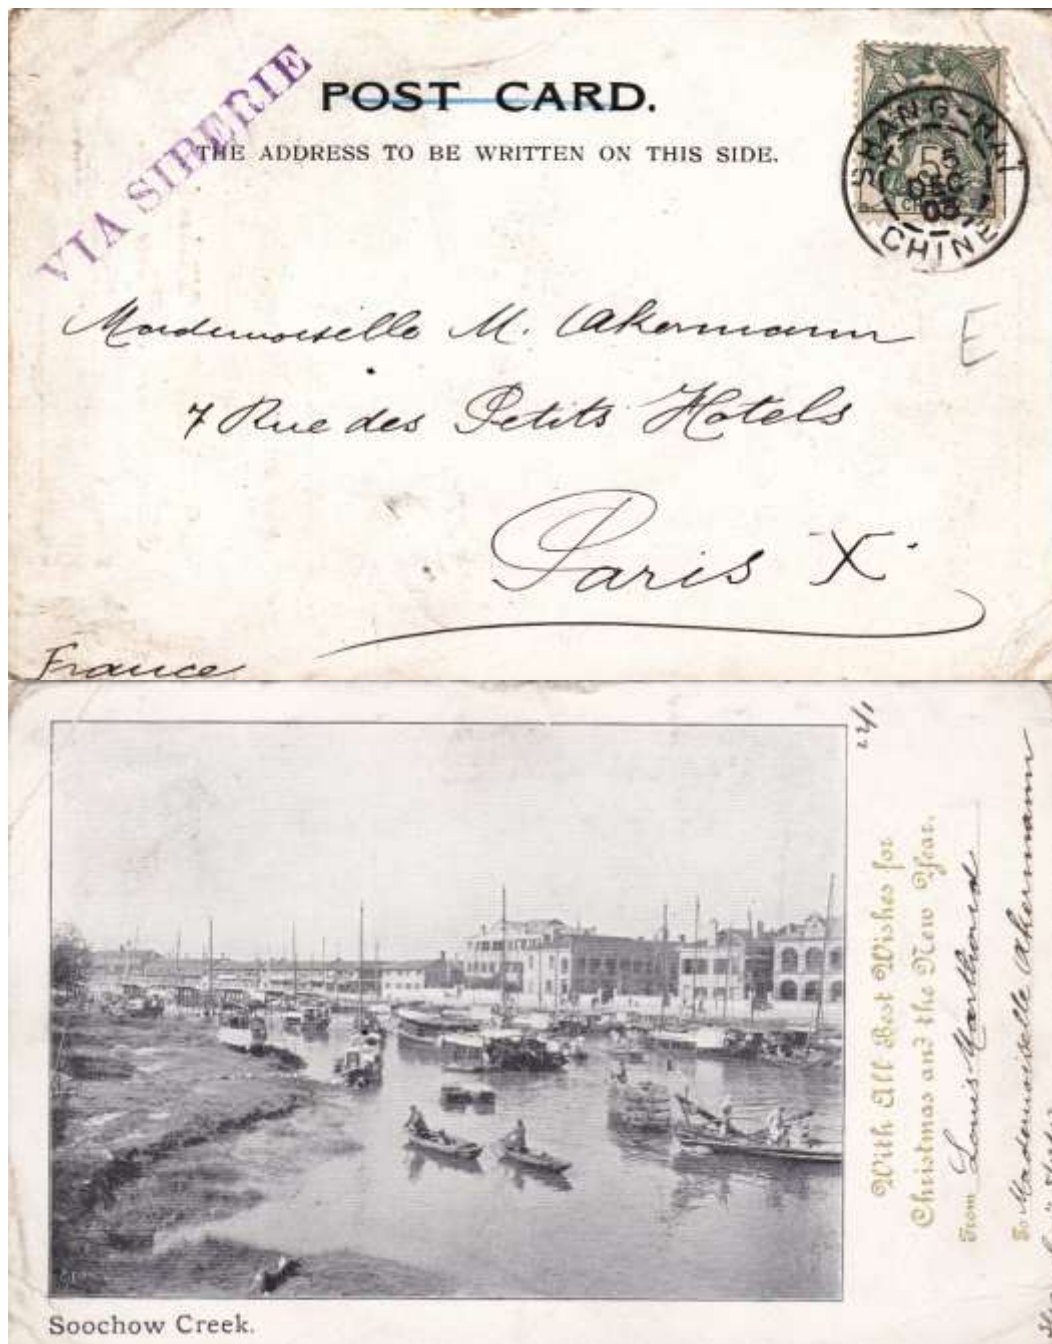 VIA SIBERIE
POST CARD.
THE ADDRESS TO BE WRITTEN ON THIS SIDE.
SHANG-HAI
5
DEC
03
CHINE
Mademoiselle M. Akermann
E
7 Rue des Petits Hotels
Paris X
France
22/1
With All Best Wishes for
Christmas and the New Year.
From Louis Marthoud
To Mademoiselle Akermann
Soochow Creek.